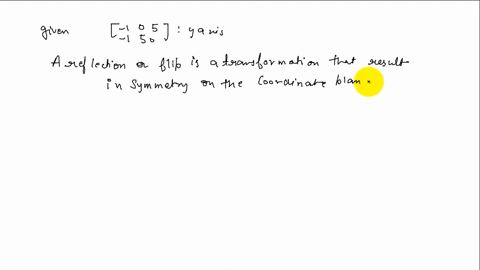 given [-1 0 5 -1 5 0] : y axis
A reflection or flip is a transformation that result
in symmetry on the coordinate plan